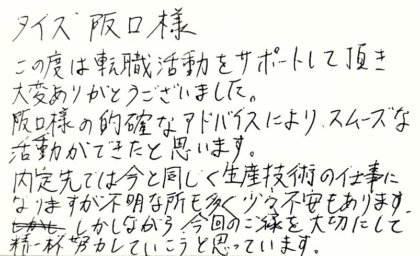 タイズ 阪口様
この度は転職活動をサポートして頂き
大変ありがとうございました。
阪口様の的確なアドバイスにより、スムーズな
活動ができたと思います。
内定先では今と同じく生産技術の仕事に
なりますが不明な所も多く少々不安もあります。
しかしながら、今回のご縁を大切にして
精一杯努力していこうと思っています。